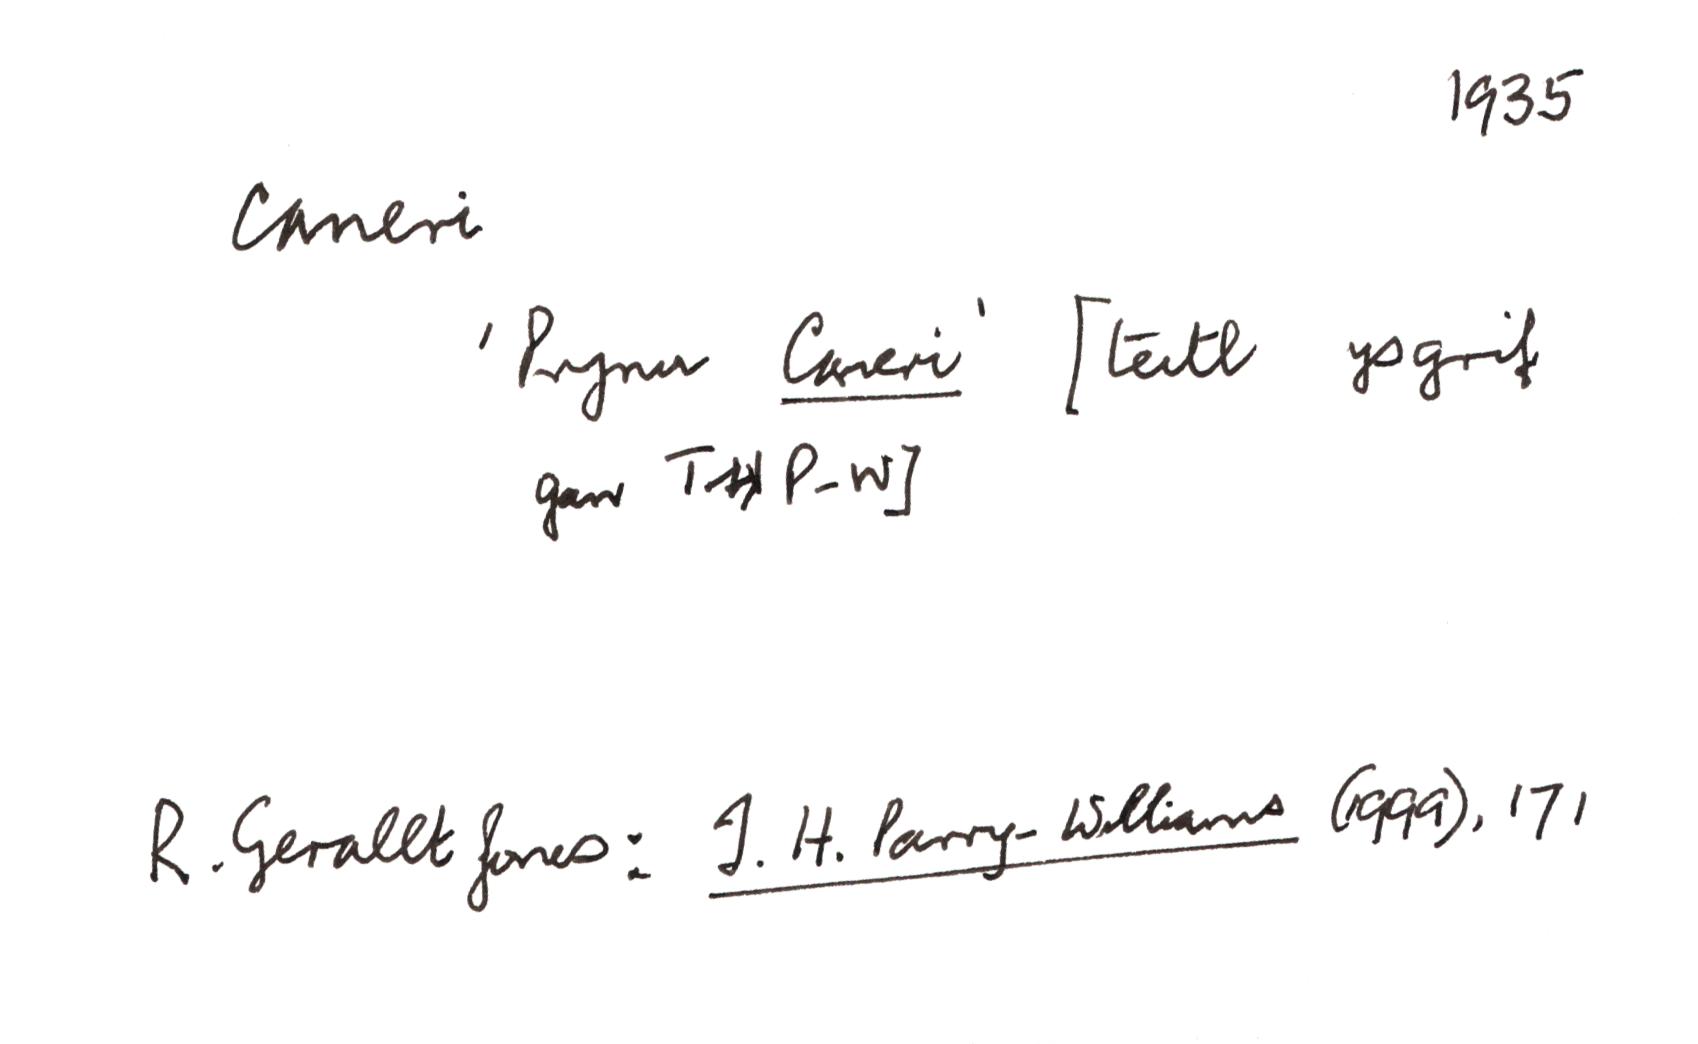 1935
Caneri
'Prynu Caneri' [teitl ysgrif
gan TH P-W]
R. Gerallt Jones: T. H. Parry-Williams (1999), 171